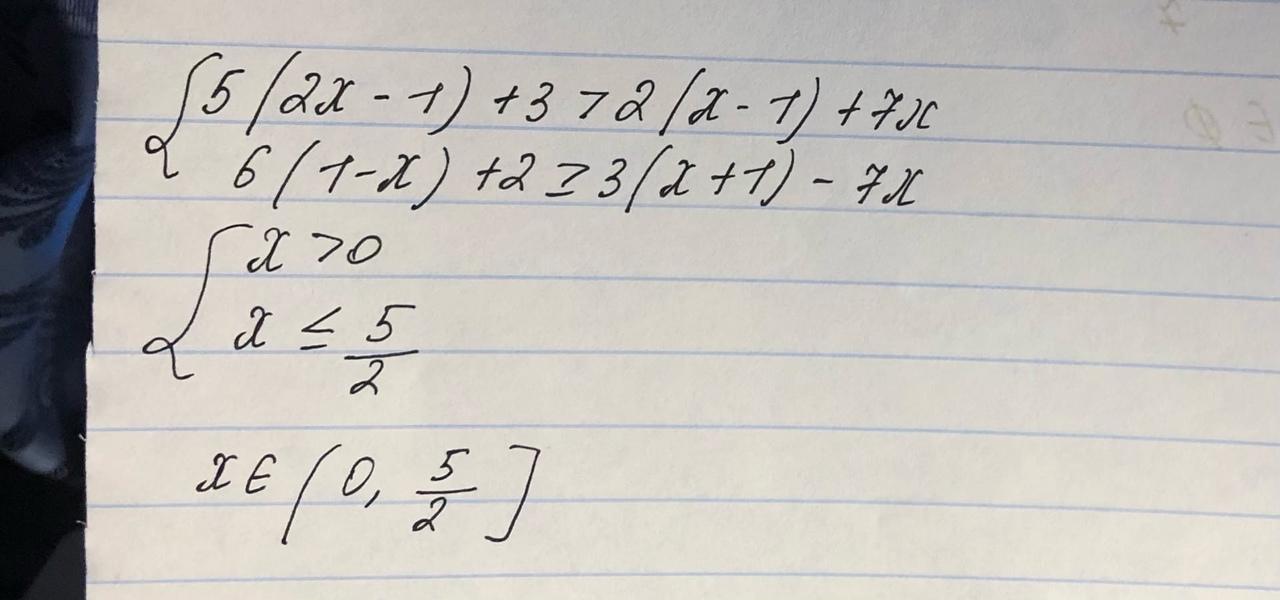 { 5(2x - 1) + 3 > 2(x - 1) + 7x
6(1-x) + 2 ≥ 3(x+1) - 7x
{ x > 0
x ≤ 5/2
x ∈ (0, 5/2]